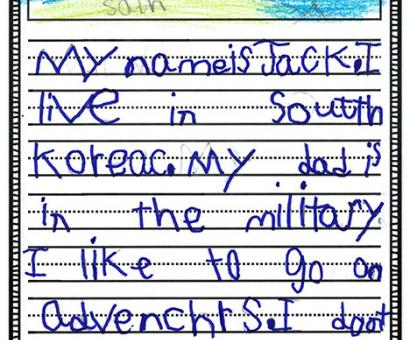 My name is Jack. I
live in Soutth
Koreac. My dad is
in the military.
I like to go on
advenchrs. I doot